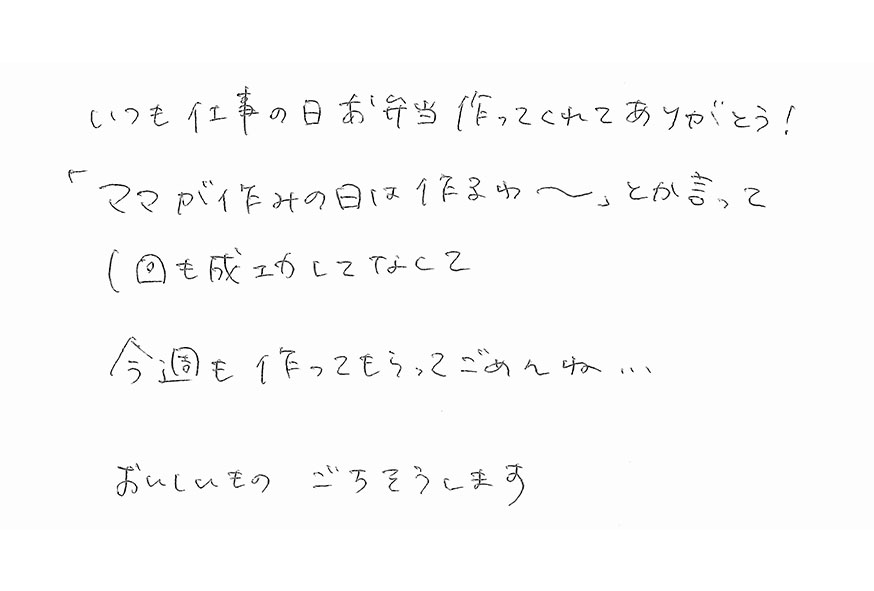 いつも仕事の日お弁当作ってくれてありがとう!
「ママが休みの日は作るわ〜」とか言って
1回も成功してなくて
今週も作ってもらってごめんね...
おいしいもの ごちそうします